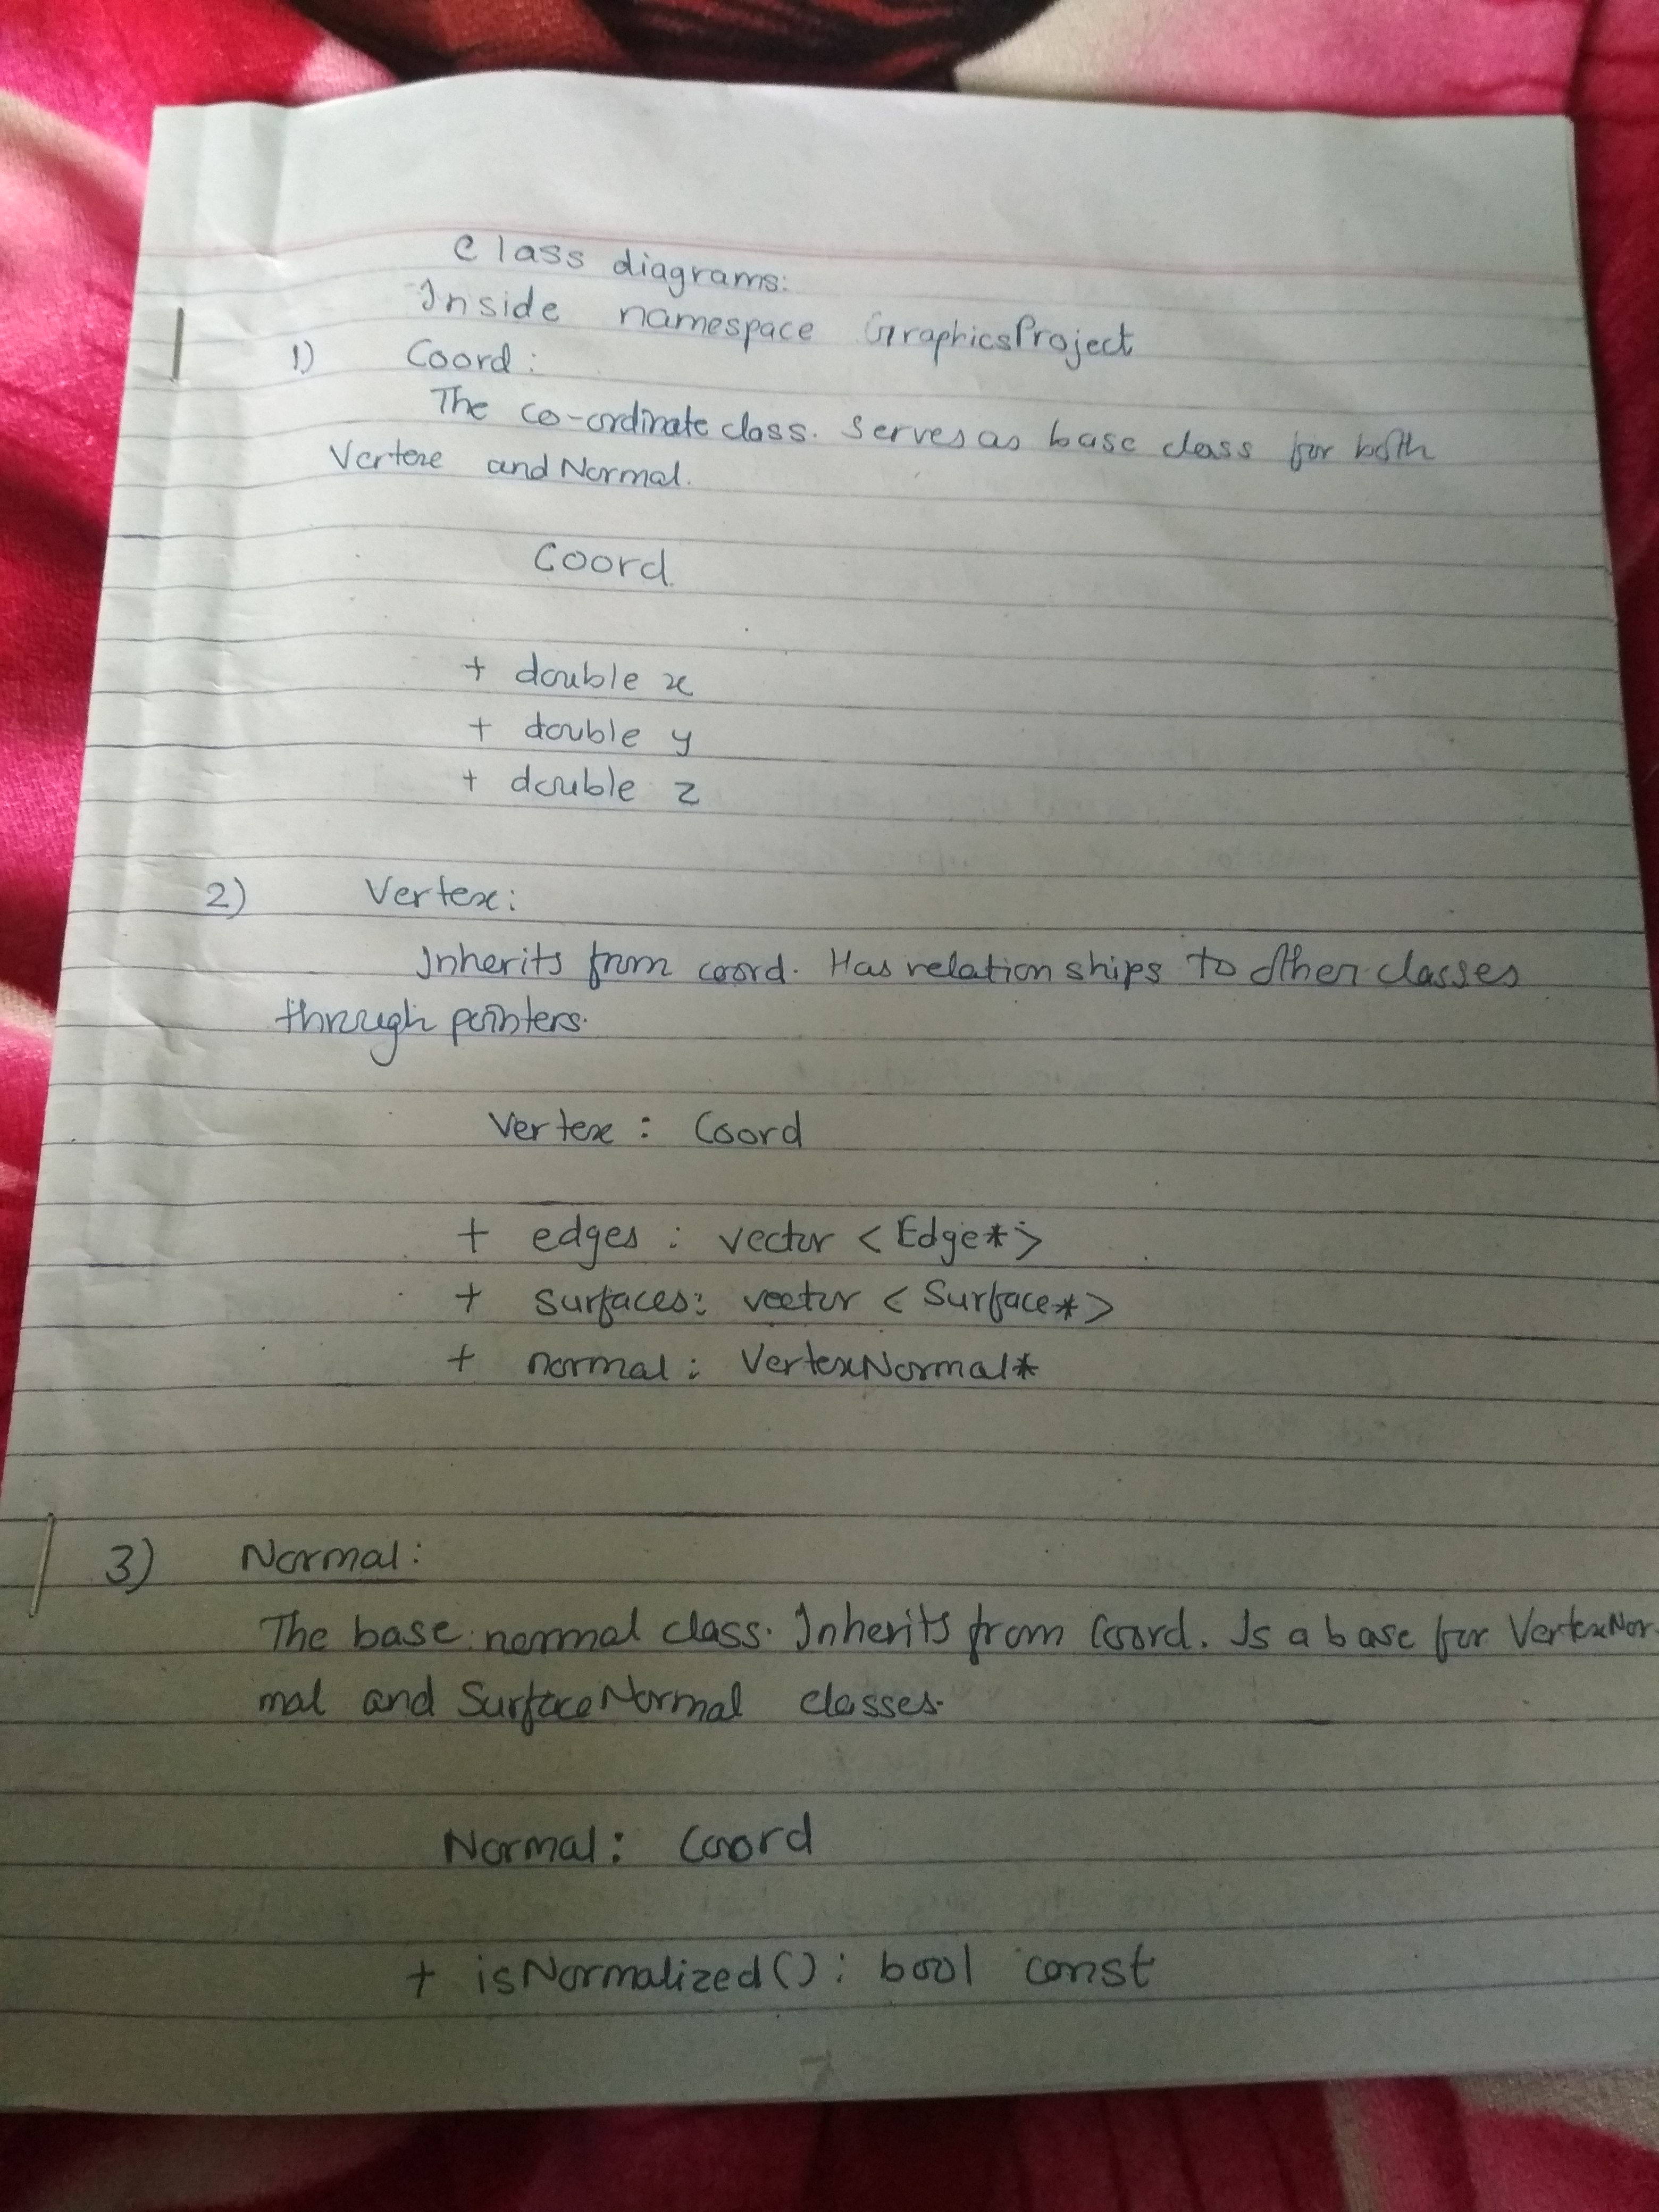 Class diagrams:
Inside namespace GraphicsProject
1) Coord:
The co-ordinate class. Serves as base class for both
Vertex and Normal.
Coord
+ double x
+ double y
+ double z
2) Vertex:
Inherits from coord. Has relation ships to other classes
through pointers.
Vertex : Coord
+ edges : vector <Edge*>
+ surfaces: vector <Surface*>
+ normal: VertexNormal*
3) Normal:
The base normal class. Inherits from Coord. Is a base for VertexNor-
mal and SurfaceNormal classes.
Normal: Coord
+ isNormalized(): bool const